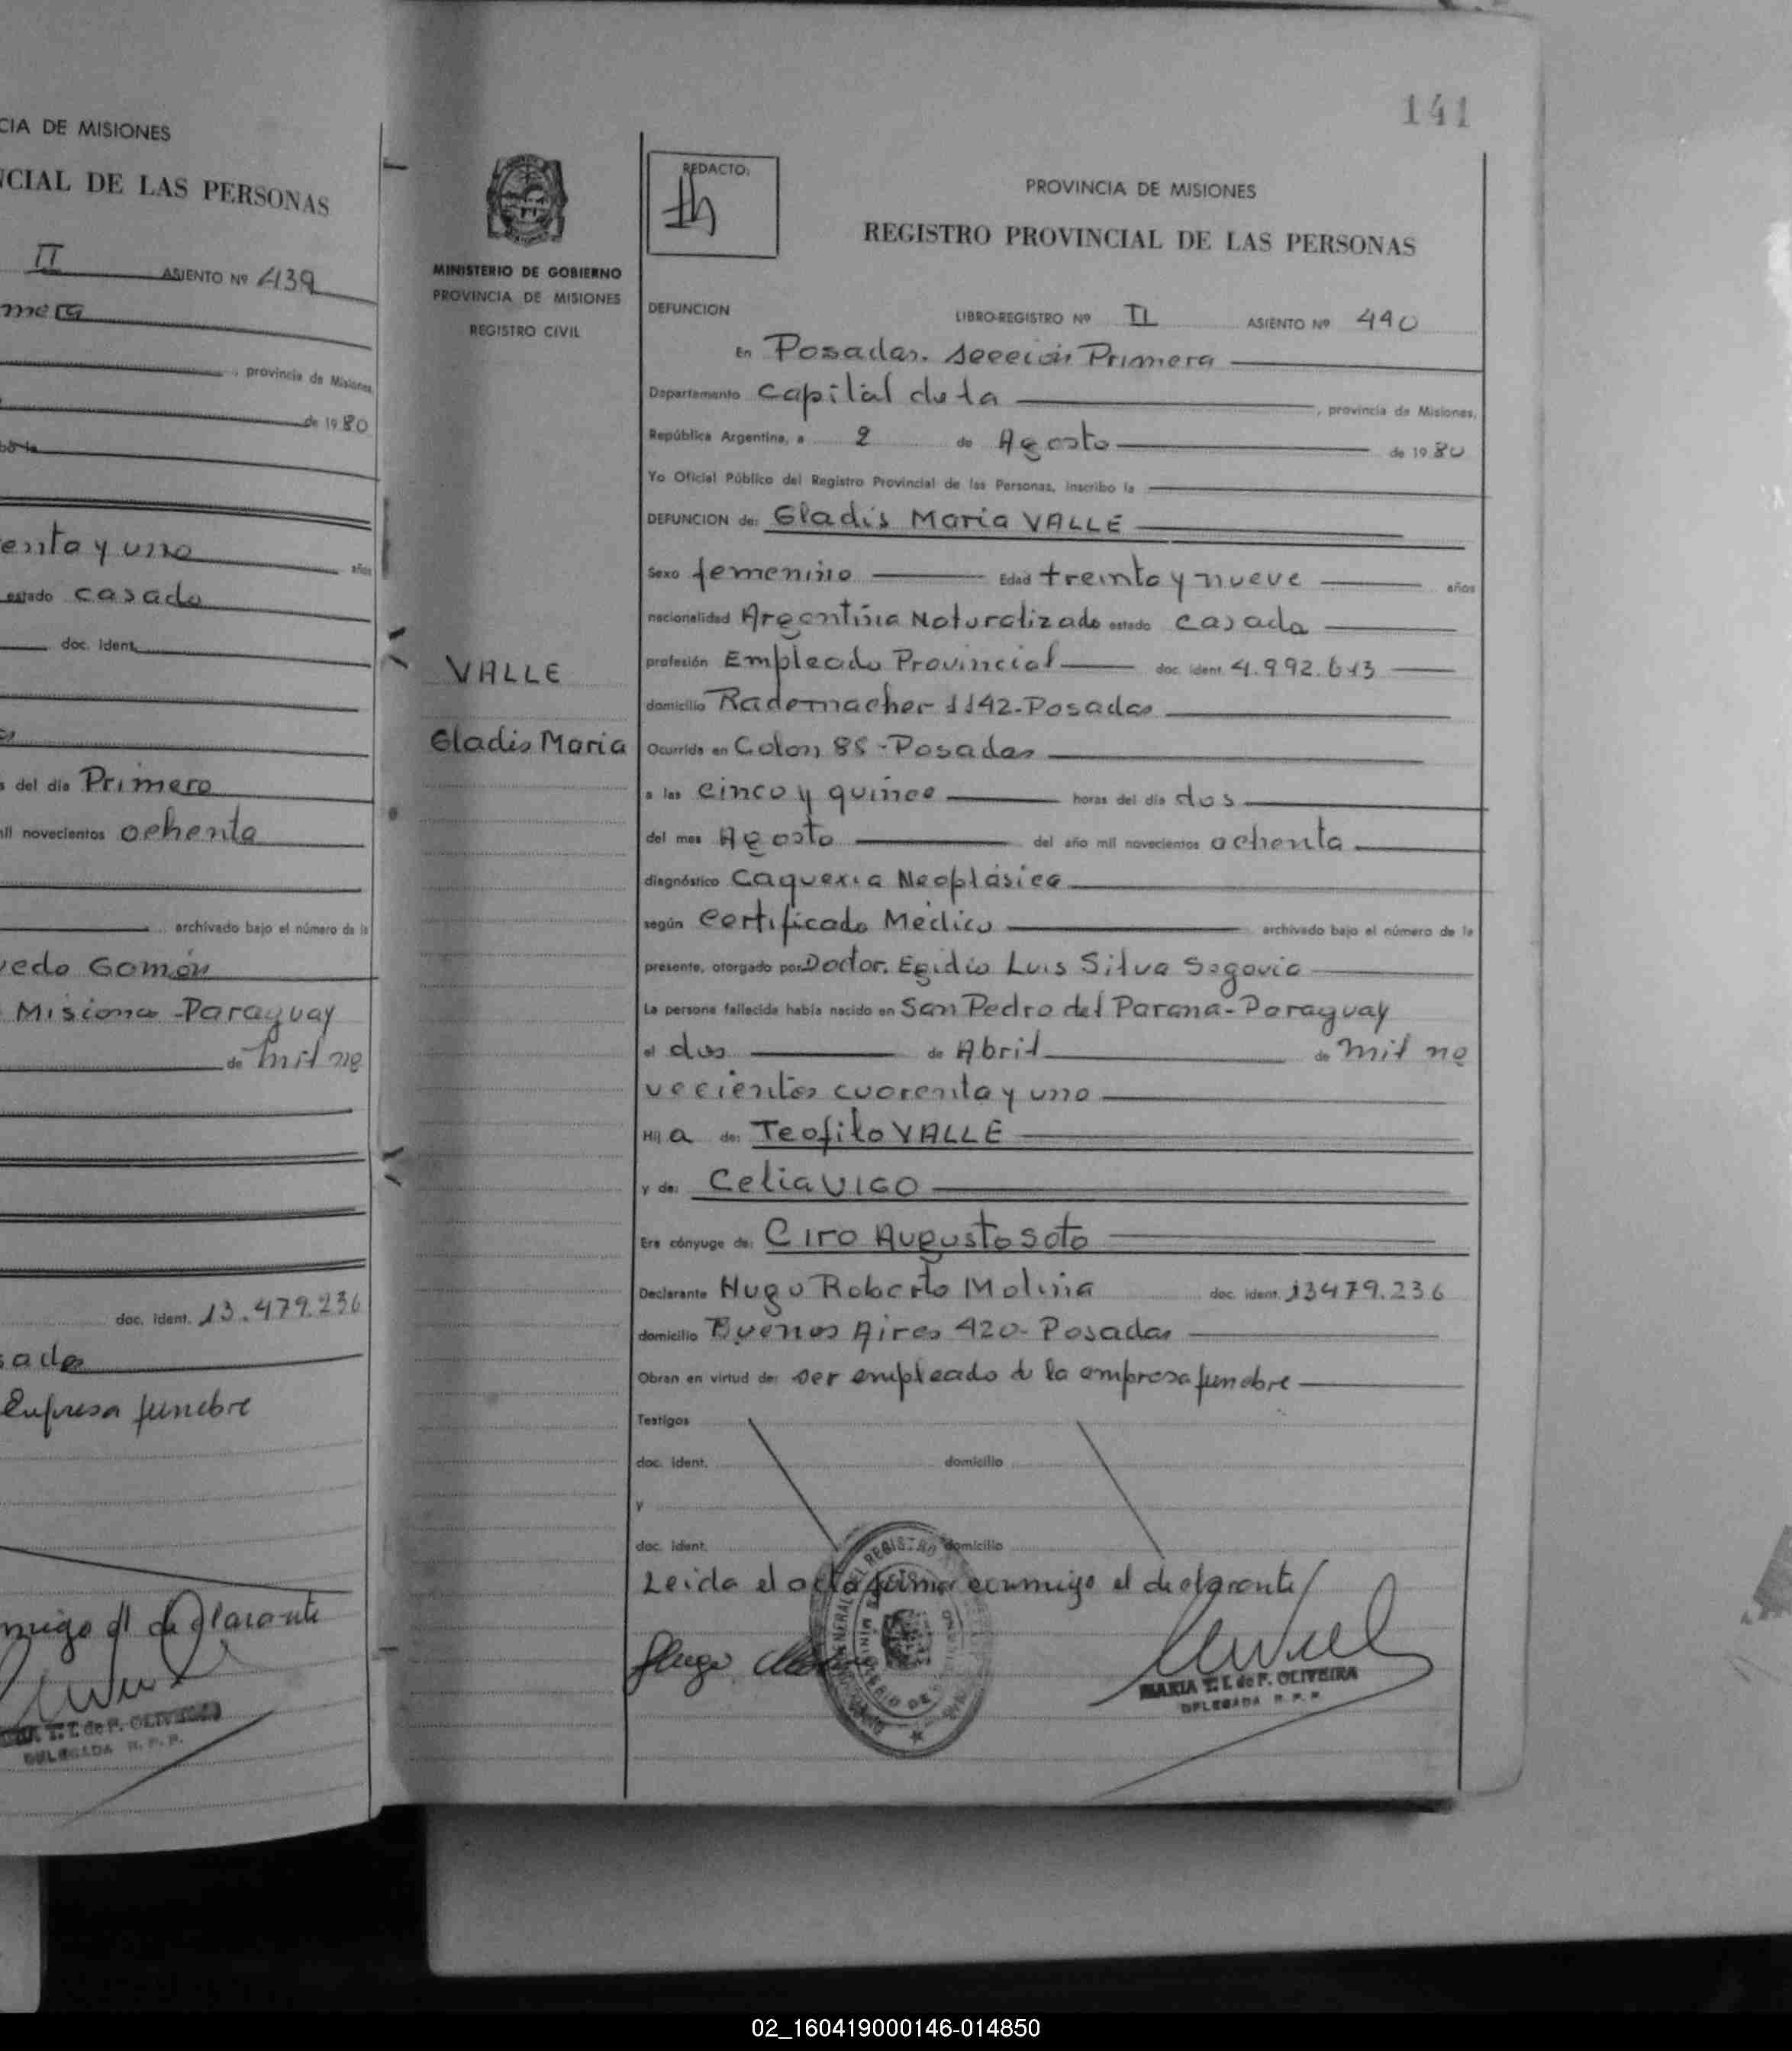 CIA DE MISIONES
CIAL DE LAS PERSONAS
II ASIENTO Nº 439
mera
, provincia de Misiones
de 1980
enta y uno años
estado casado
doc. ident.
s del dia Primero
mil novecientos ochenta
archivado bajo el número de la
Misiones -Paraguay
de mil no
doc. ident. 13.479.236
sadas
Empresa funebre
migo el declarante
DELEGADA R.P.P.
141
MINISTERIO DE GOBIERNO
PROVINCIA DE MISIONES
REGISTRO CIVIL
VALLE
Gladis Maria
REDACTO:
PROVINCIA DE MISIONES
REGISTRO PROVINCIAL DE LAS PERSONAS
DEFUNCION LIBRO-REGISTRO Nº II ASIENTO Nº 440
En Posadas. sección Primera
Departamento Capital de la , provincia de Misiones,
República Argentina, a 2 de Agosto de 1980
Yo Oficial Público del Registro Provincial de las Personas, inscribo la
DEFUNCION de: Gladis Maria VALLE
Sexo femenino Edad treinta y nueve años
nacionalidad Argentina Naturalizada estado casada
profesión Empleada Provincial doc. ident. 4.992.613
domicilio Rademacher 1142-Posadas
Ocurrida en Colon 85-Posadas
a las cinco y quince horas del día dos
del mes Agosto del año mil novecientos ochenta
diagnóstico Caquexia Neoplásica
según Certificado Médico archivado bajo el número de la
presente, otorgado por Doctor. Egidio Luis Silva Segovia
La persona fallecida había nacido en San Pedro del Parana-Paraguay
el dos de Abril de mil no
vecientos cuarenta y uno
Hij a de: Teofilo VALLE
y de: Celia VIGO
Era cónyuge de: Ciro Augusto Soto
Declarante Hugo Roberto Molina doc. ident. 13479.236
domicilio Buenos Aires 420- Posadas
Obran en virtud de: ser empleado de la empresa funebre
Testigos
doc. ident. domicilio
y
doc. ident. domicilio
Leida el acta firma conmigo el declarante/
Hugo
MARIA T. I. de P. OLIVEIRA
DELEGADA R.P.P.
02_160419000146-014850